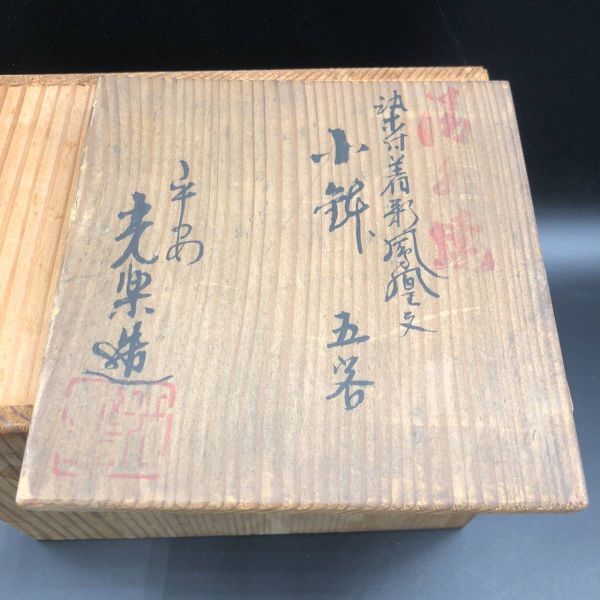 清水焼
染付着彩鳳凰文
小鉢 五客
平安
光楽造